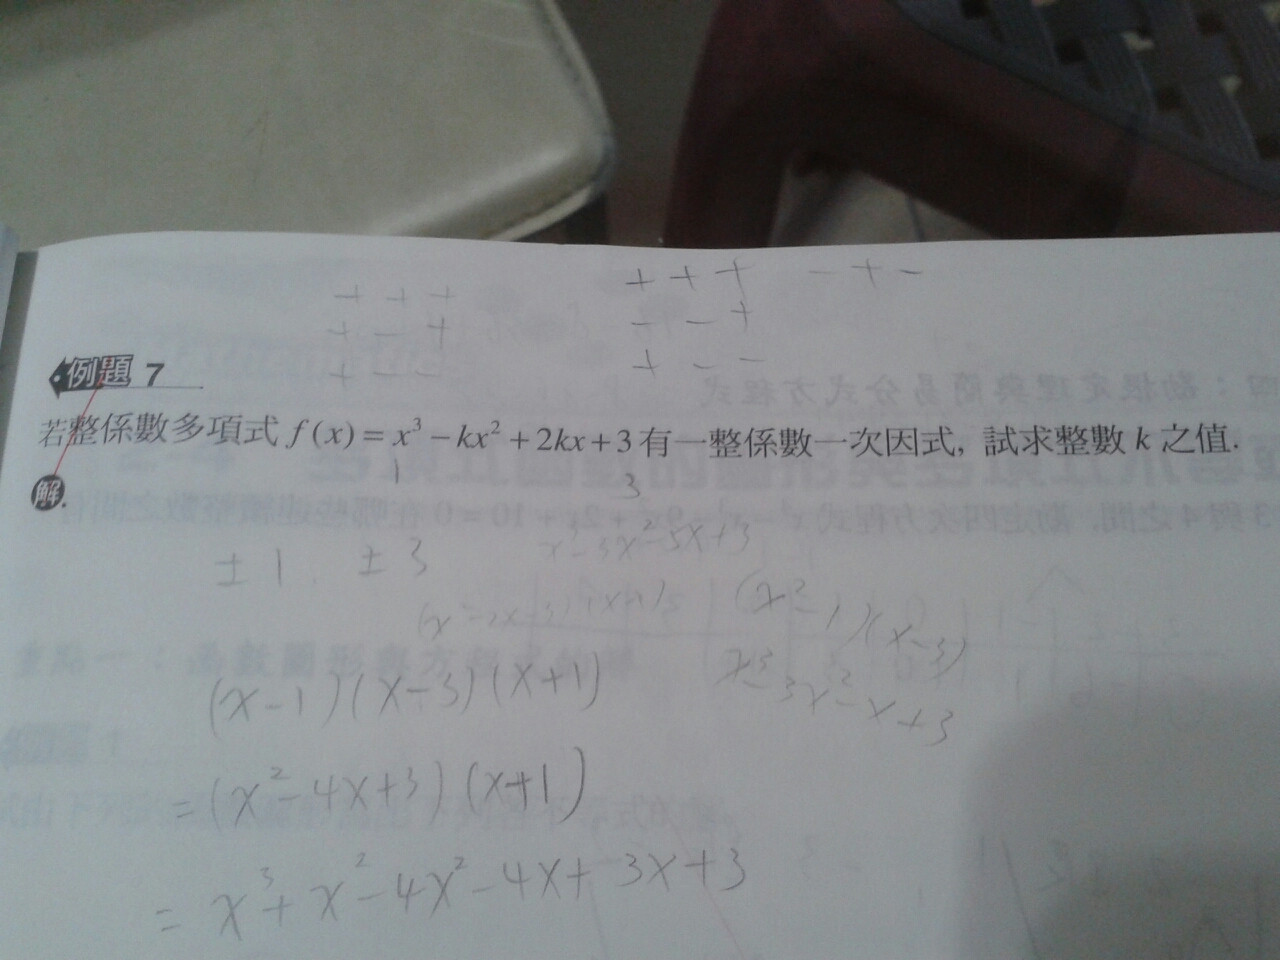 + + +
+ + + - + -
+ - +
- - +
+ - -
+ - -
例題 7
若整係數多項式 f(x) = x³ − kx² + 2kx + 3 有一整係數一次因式, 試求整數 k 之值.
1 3
解.
± 1 ± 3
x³-3x²-5x+3
(x²-1)(x-3)
x³-3x²-x+3
(x-1)(x-3)(x+1)
=(x²-4x+3)(x+1)
= x³+x²-4x²-4x+3x+3